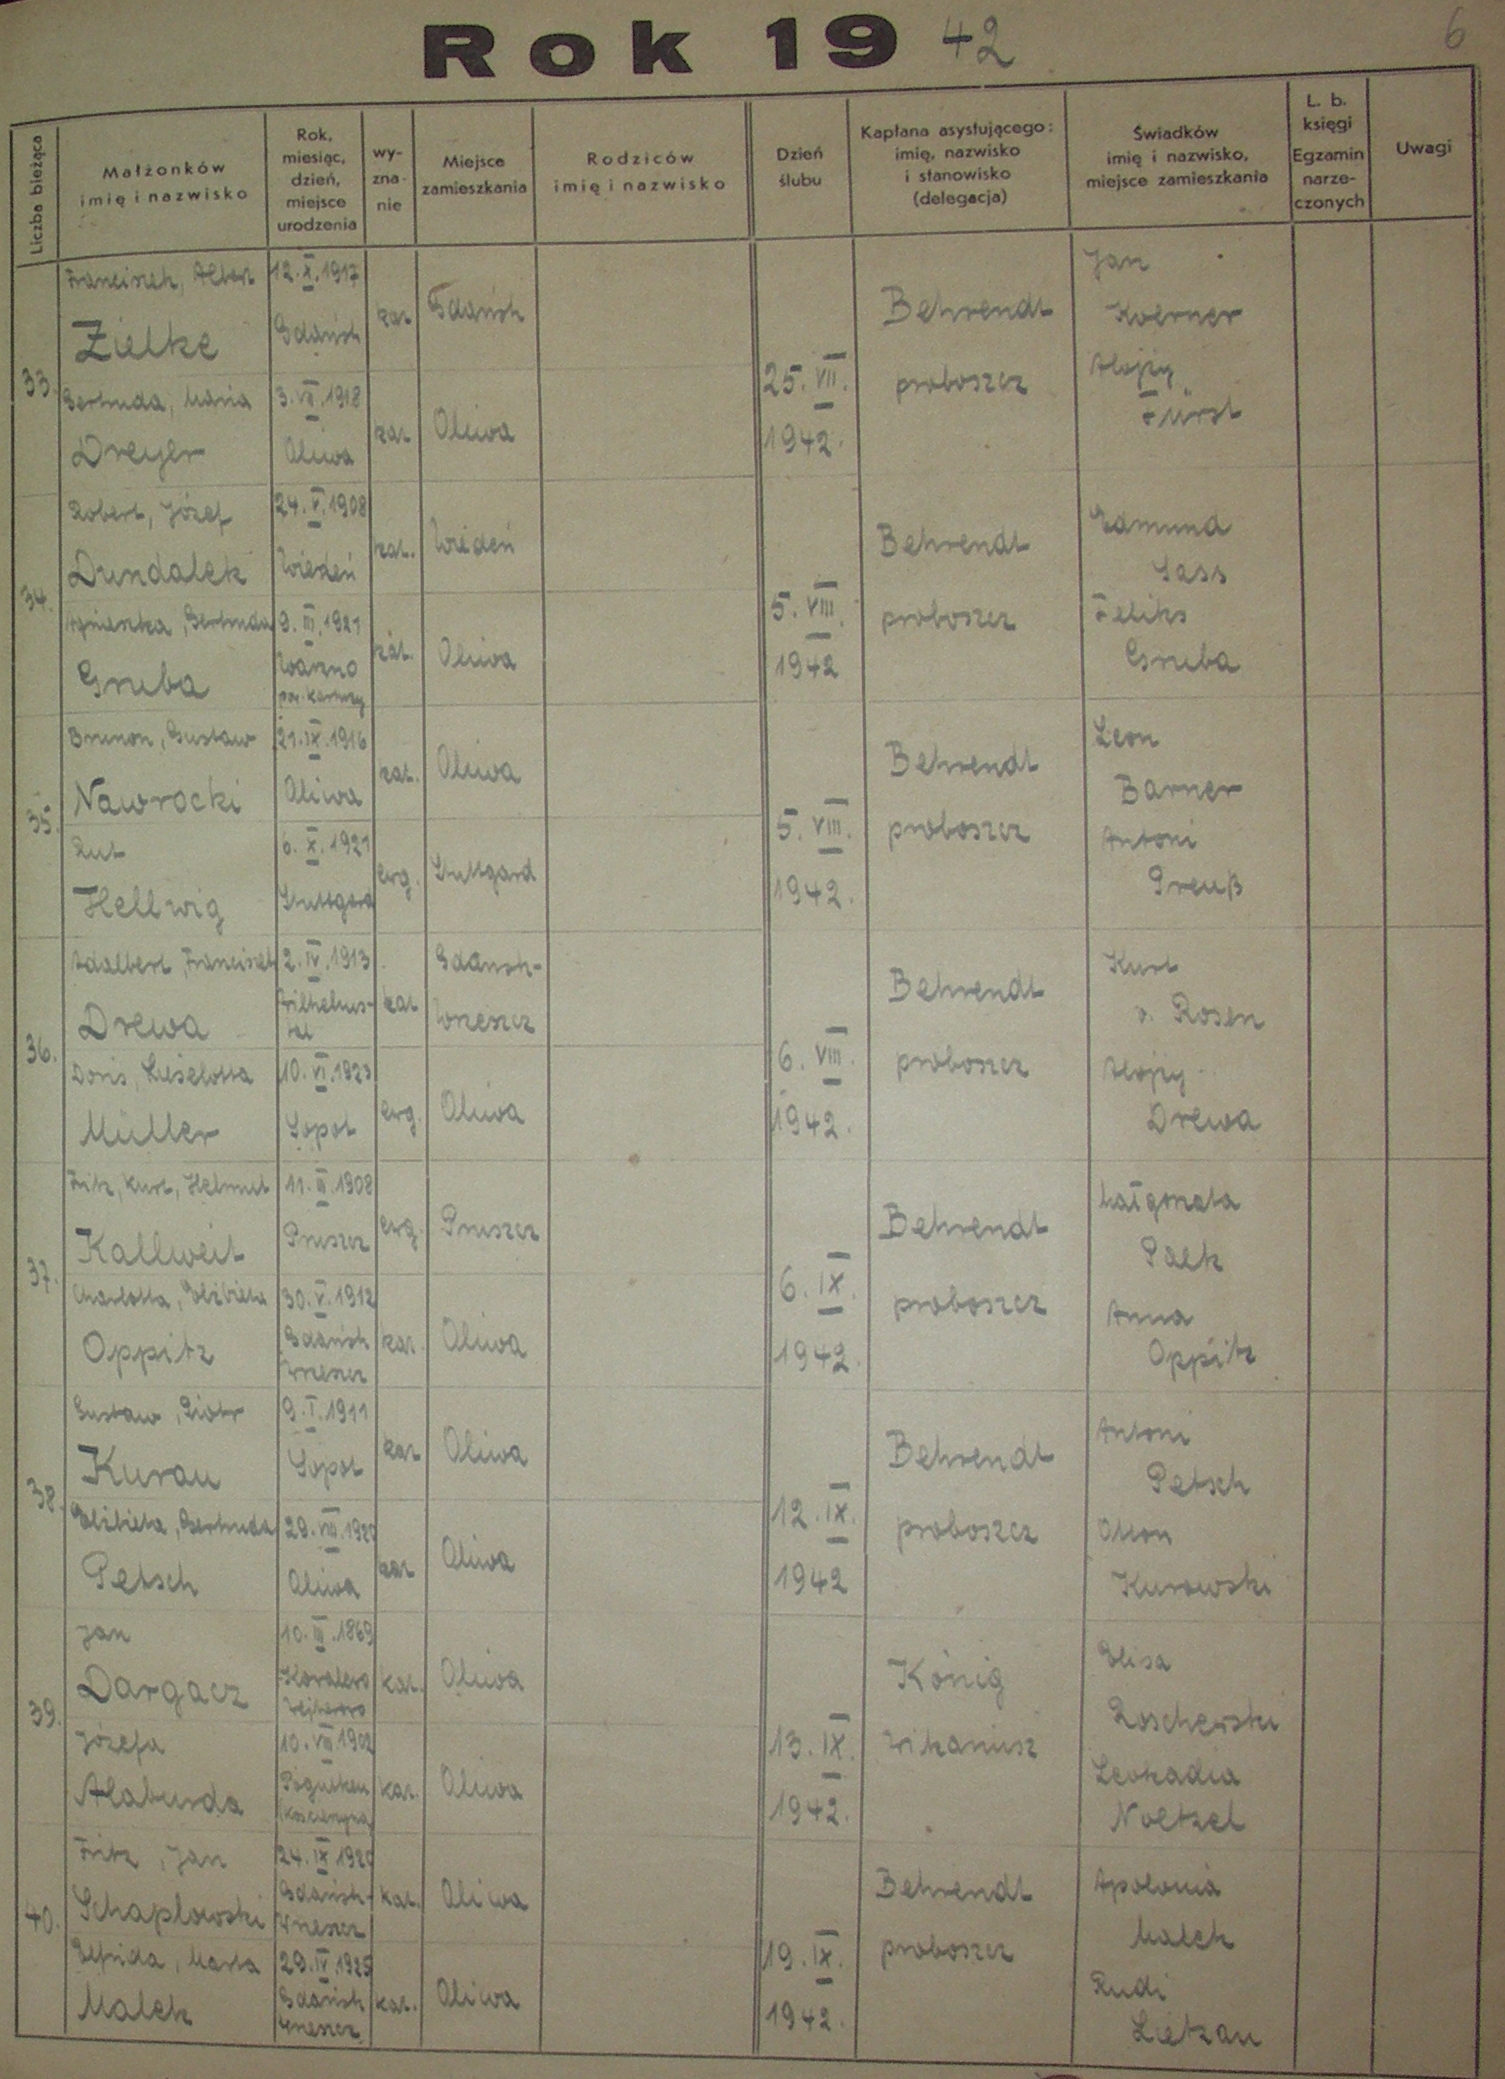 Rok 19 42
6
Liczba bieżąca
Małżonków
imię i nazwisko
Rok,
miesiąc,
dzień,
miejsce
urodzenia
wy-
zna-
nie
Miejsce
zamieszkania
Rodziców
imię i nazwisko
Dzień
ślubu
Kapłana asystującego:
imię, nazwisko
i stanowisko
(delegacja)
Świadków
imię i nazwisko,
miejsce zamieszkania
L. b.
księgi
Egzamin
narze-
czonych
Uwagi
33.
Franciszek, Albert
Zielke
12.X.1917
Gdańsk
kat
Gdańsk
Gertruda, Maria
Dreyer
3.VII.1918
Oliwa
kat
Oliwa
25.VII.
1942.
Behrendt
proboszcz
Jan
Koerner
Alojzy
Fürst
34.
Robert, Józef
Dundalek
24.V.1908
Wiedeń
kat.
Wiedeń
Agnieszka, Gertruda
Gruba
9.III.1921
pow. Kartuzy
kat.
Oliwa
5.VIII.
1942
Behrendt
proboszcz
Edmund
Sass
Feliks
Gruba
35.
Brunon, Gustaw
Nawrocki
21.IX.1916
Oliwa
kat.
Oliwa
Rut
Hellwig
6.X.1921
Stuttgard
ewg.
Stuttgard
5.VIII.
1942.
Behrendt
proboszcz
Leon
Barner
Antoni
Preuß
36.
Adalbert, Franciszek
Drewa
2.IV.1913
Wilhelms-
tal
kat
Gdańsk-
Wrzeszcz
Doris, Lieselotta
Müller
10.VI.1923
Sopot
ewg.
Oliwa
6.VIII.
1942.
Behrendt
proboszcz
Kurt
v. Rosen
Alojzy
Drewa
37.
Fritz, Kurt, Helmut
Kallweit
11.III.1908
Pruszcz
ewg.
Pruszcz
Charlotta, Elżbieta
Oppitz
30.V.1912
Gdańsk
Wrzeszcz
kat.
Oliwa
6.IX.
1942.
Behrendt
proboszcz
Małgorzata
Anna
Oppitz
38.
Gustaw, Piotr
Kurau
9.I.1911
Sopot
kat
Oliwa
Elżbieta, Gertruda
Petsch
29.VIII.
Oliwa
kat
Oliwa
12.IX.
1942
Behrendt
proboszcz
Antoni
Petsch
Otton
Kurowski
39.
Jan
Dargacz
10.III.1869
Wejherowo
kat.
Oliwa
Józefa
Alaburda
10.VII.1902
Pogutken
Kościerzyna
kat.
Oliwa
13.IX.
1942.
König
Wikariusz
Elisa
Roscherski
Leokadia
Noetzel
40.
Fritz, Jan
Schaplowski
24.IX.1920
Gdańsk-
Wrzeszcz
kat.
Oliwa
Elfrida, Marta
Malek
29.IV.1925
Gdańsk
Wrzeszcz
kat.
Oliwa
19.IX.
1942.
Behrendt
proboszcz
Apolonia
Malek
Rudi
Lietzau